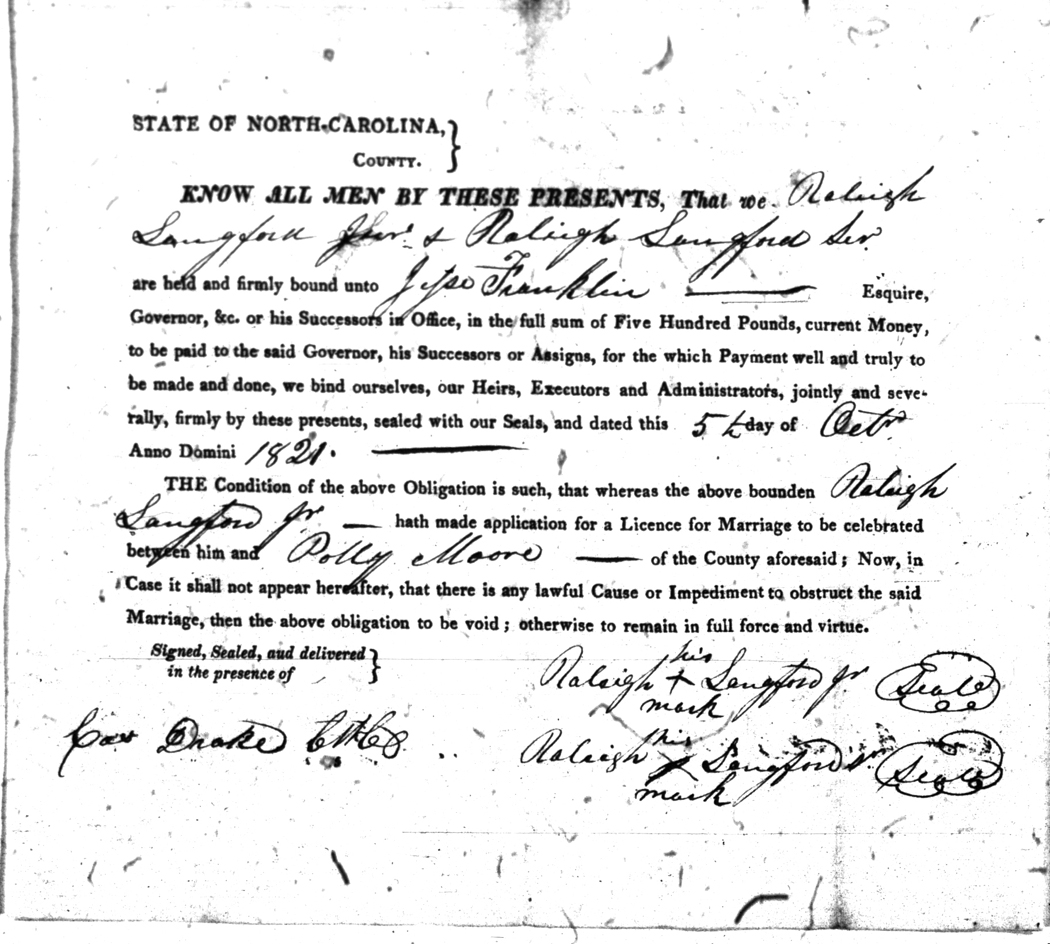 STATE OF NORTH-CAROLINA,
COUNTY.
KNOW ALL MEN BY THESE PRESENTS, That we Raleigh
Langford Junr. & Raleigh Langford Ser.
are held and firmly bound unto Jesse Franklin Esquire,
Governor, &c. or his Successors in Office, in the full sum of Five Hundred Pounds, current Money,
to be paid to the said Governor, his Successors or Assigns, for the which Payment well and truly to
be made and done, we bind ourselves, our Heirs, Executors and Administrators, jointly and seve-
rally, firmly by these presents, sealed with our Seals, and dated this 5th day of Octr.
Anno Domini 1821.
THE Condition of the above Obligation is such, that whereas the above bounden Raleigh
Langford Jr hath made application for a Licence for Marriage to be celebrated
between him and Polly Moore of the County aforesaid; Now, in
Case it shall not appear hereafter, that there is any lawful Cause or Impediment to obstruct the said
Marriage, then the above obligation to be void; otherwise to remain in full force and virtue.
Signed, Sealed, and delivered
in the presence of
his
Raleigh + Langford Jr Seal
mark
Drake
his
Raleigh x Langford Sr Seal
mark